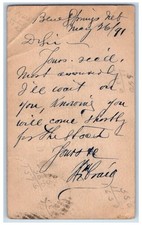 Blue Springs Neb
May 26/91
D. Sir
Yours rec'd.
Most assuredly
I'll wait on
you knowing you
will come shortly
for the
Yours &c
Craig